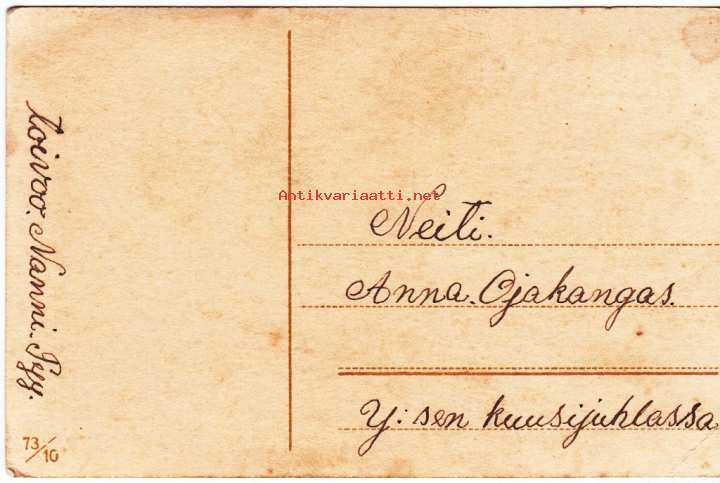 toivoo. Nanni. Pyy.
73/10
Antikvariaatti.net
Neiti.
Anna. Ojakangas.
Y: sen kuusijuhlassa